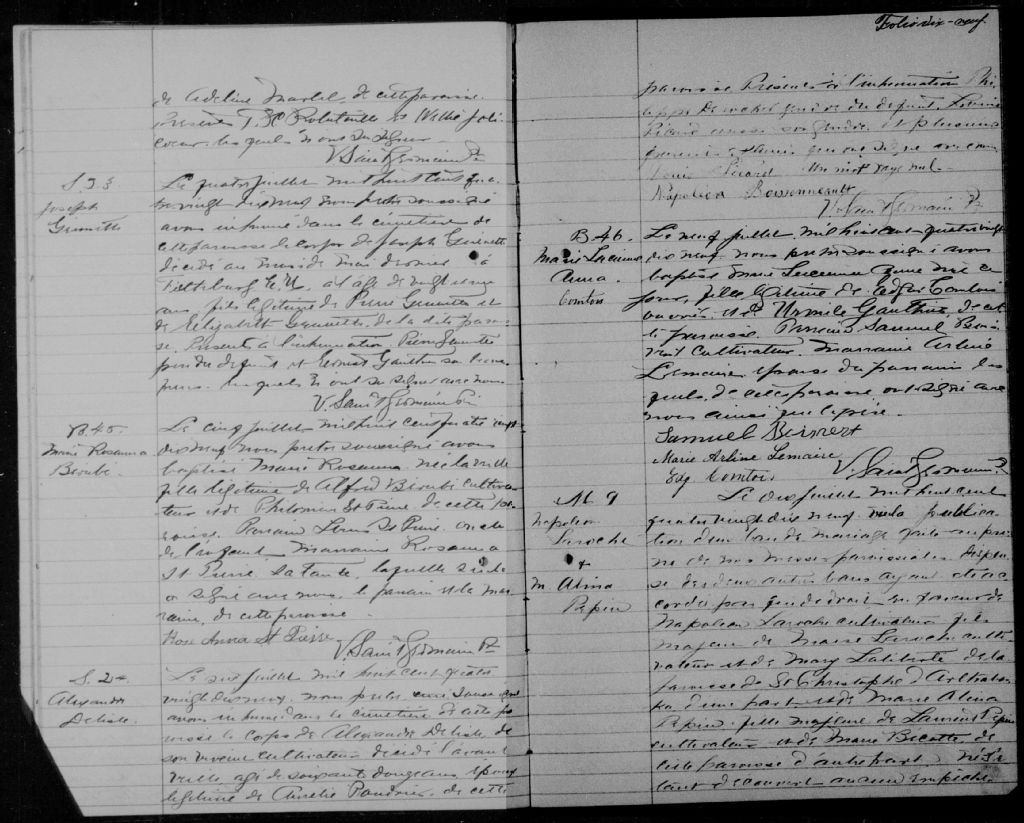 de Adeline Martel, de cette paroisse.
Présents T. Robitaille et Willie Joli
coeur lesquels n'ont su signer
V. Saint Germain Ptr
S. 23
Joseph
Le quatre juillet mil huit cent qua
tre vingt dix neuf nous prêtre soussigné
avons inhumé dans le cimetière de
cette paroisse le corps de Joseph
décédé au mois de mai dernier à
à l'âge de vingt
ans fils légitime de Pierre et
de Elizabeth de la dite parois-
se. Présents à l'inhumation Pierre
père du défunt et Ernest Gauthier son beau
frère lesquels n'ont su signer avec nous
V. Saint Germain Ptr
B. 45.
Marie Rosanna
Bérubé
Le cinq juillet mil huit cent quatre vingt
dix neuf nous prêtre soussigné avons
baptisé Marie Rosanna née la veille
fille légitime de Alfred Bérubé cultiva-
teur et de Philomène St Pierre de cette pa-
roisse. Parrain Louis St Pierre oncle
de l'enfant marraine Rosanna
St Pierre sa tante, laquelle seule
a signé avec nous, le parrain et la mar-
raine, de cette paroisse
Rose Anna St Pierre
V. Saint Germain Ptr
S. 24
Alexandre
Delisle
Le six juillet mil huit cent quatre
vingt dix neuf, nous prêtre curé soussigné
avons inhumé dans le cimetière de cette pa
roisse le corps de Alexandre Delisle de
son vivant cultivateur décédé l'avant
veille âgé de soixante douze ans époux
légitime de Aurélie de cette
Folio dix-neuf.
paroisse Présents à l'inhumation Phi
lippe du défunt, Louis
Picard aussi son gendre et plusieurs
parents & amis qui ont signé avec nous
Louis Picard Un mot rayé nul
Napoléon Boissonneault
V. Saint Germain Ptr
B 46.
Marie
Anna
Comtois
Le neuf juillet mil huit cent quatre vingt
dix neuf nous prêtre soussigné avons
baptisé Marie Anna née ce
jour, fille légitime de Edgar Comtois
ouvrier et de Gauthier de cet
te paroisse. Parrain Samuel Bois
vert cultivateur. Marraine Arline
Lemaire épouse du parrain les
quels de cette paroisse ont signé avec
nous ainsi que le père.
Samuel Boisvert
Marie Arline Lemaire
Edg Comtois
V. Saint Germain Ptr
M 9
Napoléon
Laroche
&
M. Alina
Pepin
Le dix juillet mil huit cent
quatre vingt dix neuf vu la publica-
tion d'un ban de mariage faite au prô
ne de nos messes paroissiales dispen
se des deux autres bans ayant été ac
cordée par qui de droit en faveur de
Napoléon Laroche cultivateur fils
majeur de Laroche culti-
vateur et de Mary Laliberté de la
paroisse de St Christophe d'Arthabas
ka d'une part et de Marie Alina
Pepin fille majeure de Laurent Pepin
cultivateur et de Marie de
cette paroisse d'autre part, ne s'é
tant découvert aucun empêche-